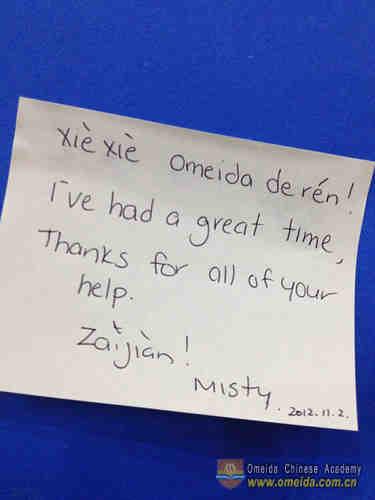 xiè xiè Omeida de rén!
I've had a great time,
Thanks for all of your
help.
Zàijiàn!
Misty. 2012.11.2.
Omeida Chinese Academy
www.omeida.com.cn